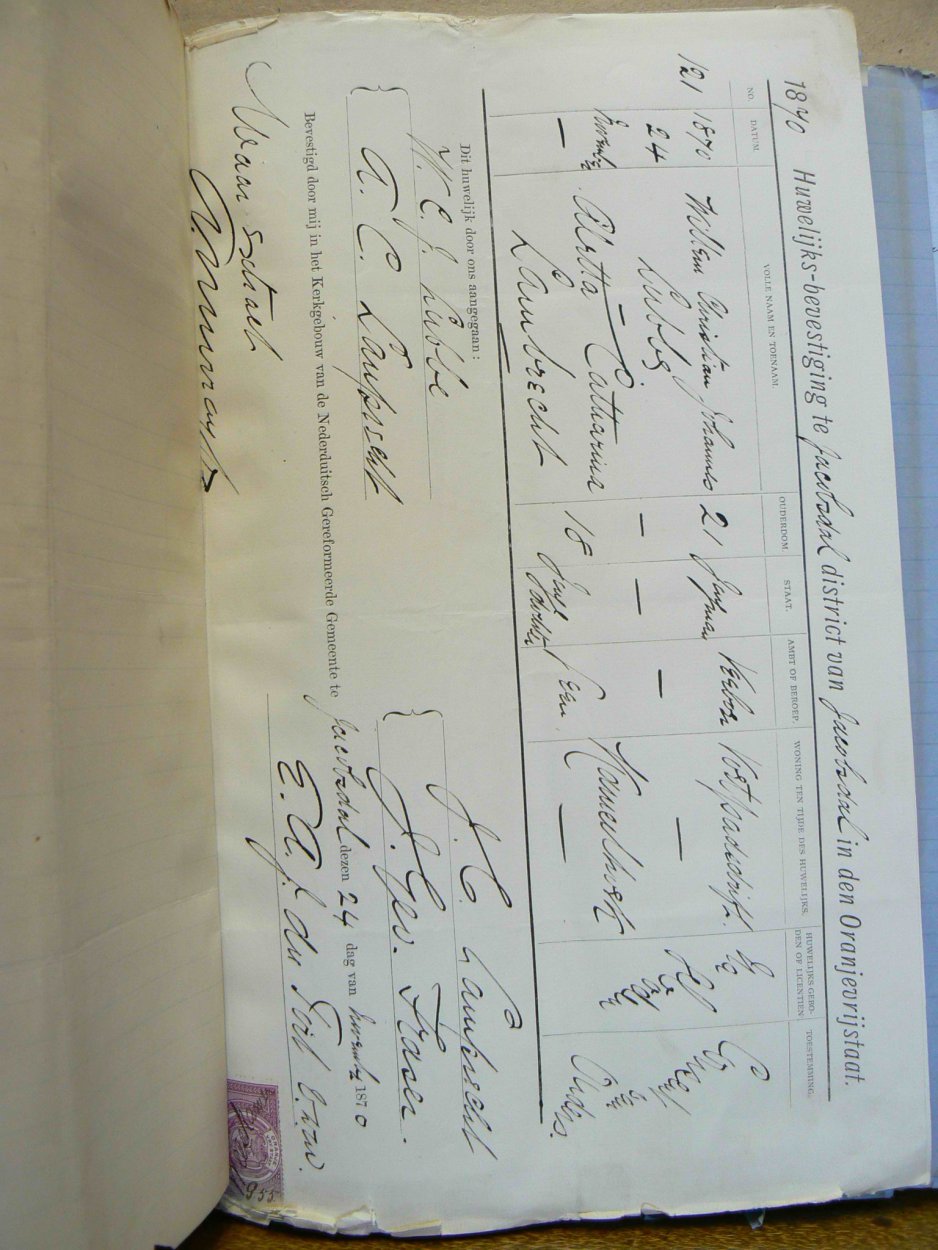 1870 Huwelijks-bevestiging te Jacobsdal district van Jacobsdal in den Oranjevrijstaat.
NO. DATUM VOLLE NAAM EN TOENAAM. OUDERDOM. STAAT. AMBT OF BEROEP. WONING TEN TIJDE DES HUWELIJKS. HUWELIJKS GEBO-DEN OF LICENTIEN. TOESTEMMING.
121 1870 Willem Christiaan Johannes 21 Jgman
24 Lubbe — — — —
November Aletta Catharina 18
— Lambrecht — Ouders.
Dit huwelijk door ons aangegaan:
W. C. J. Lubbe
A. C. Lambrecht
J. C. Lambrecht
J. Geo. Fraser.
Bevestigd door mij in het Kerkgebouw van de Nederduitsch Gereformeerde Gemeente te Jacobsdal dezen 24 dag van November 1870
E. A. J. du Toit
Waar